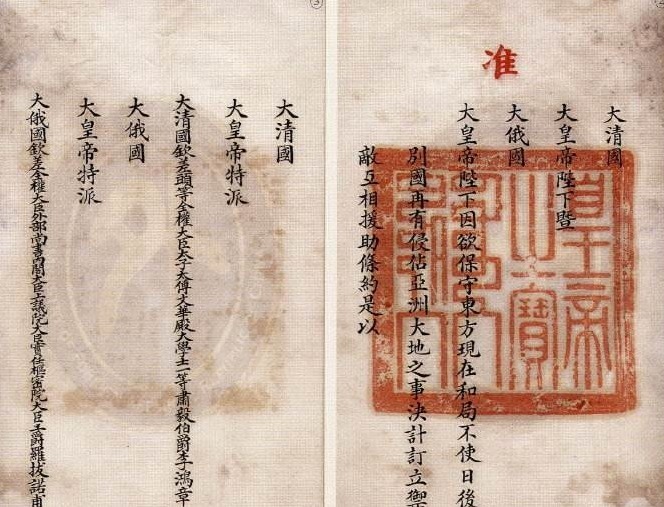 准
大清國
大皇帝陛下暨
大俄國
大皇帝陛下因欲保守東方現在和局不使日後
別國再有侵佔亞洲大地之事決計訂立禦
敵互相援助條約是以
大清國
大皇帝特派
大清國欽差頭等全權大臣太子太傅文華殿大學士一等肅毅伯爵李鴻章
大俄國
大皇帝特派
大俄國欽差全權大臣外部尚書內閣大臣上議院大臣實任樞密院大臣王爵羅拔諾甫
皇帝之寶